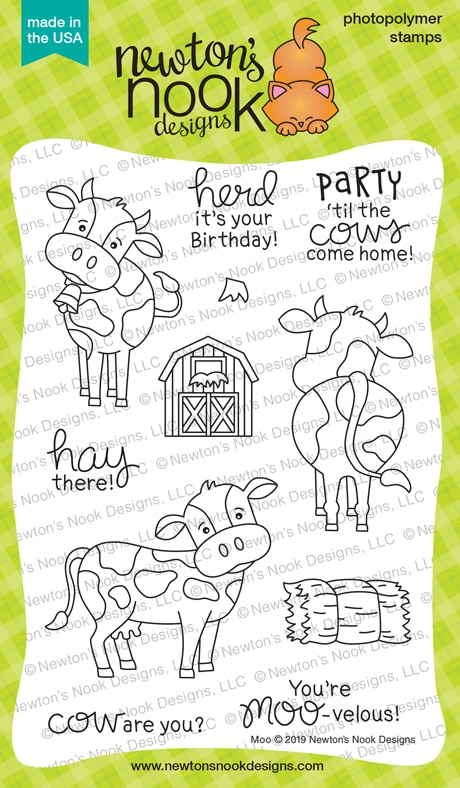 made in
the USA
photopolymer
stamps
newton's
nook
designs
herd
it's your
Birthday!
PARTY
'til the
cows
come home!
hay
there!
cow are you?
You're
moo-velous!
Moo © 2019 Newton's Nook Designs
www.newtonsnookdesigns.com
© Newton's Nook Designs, LLC